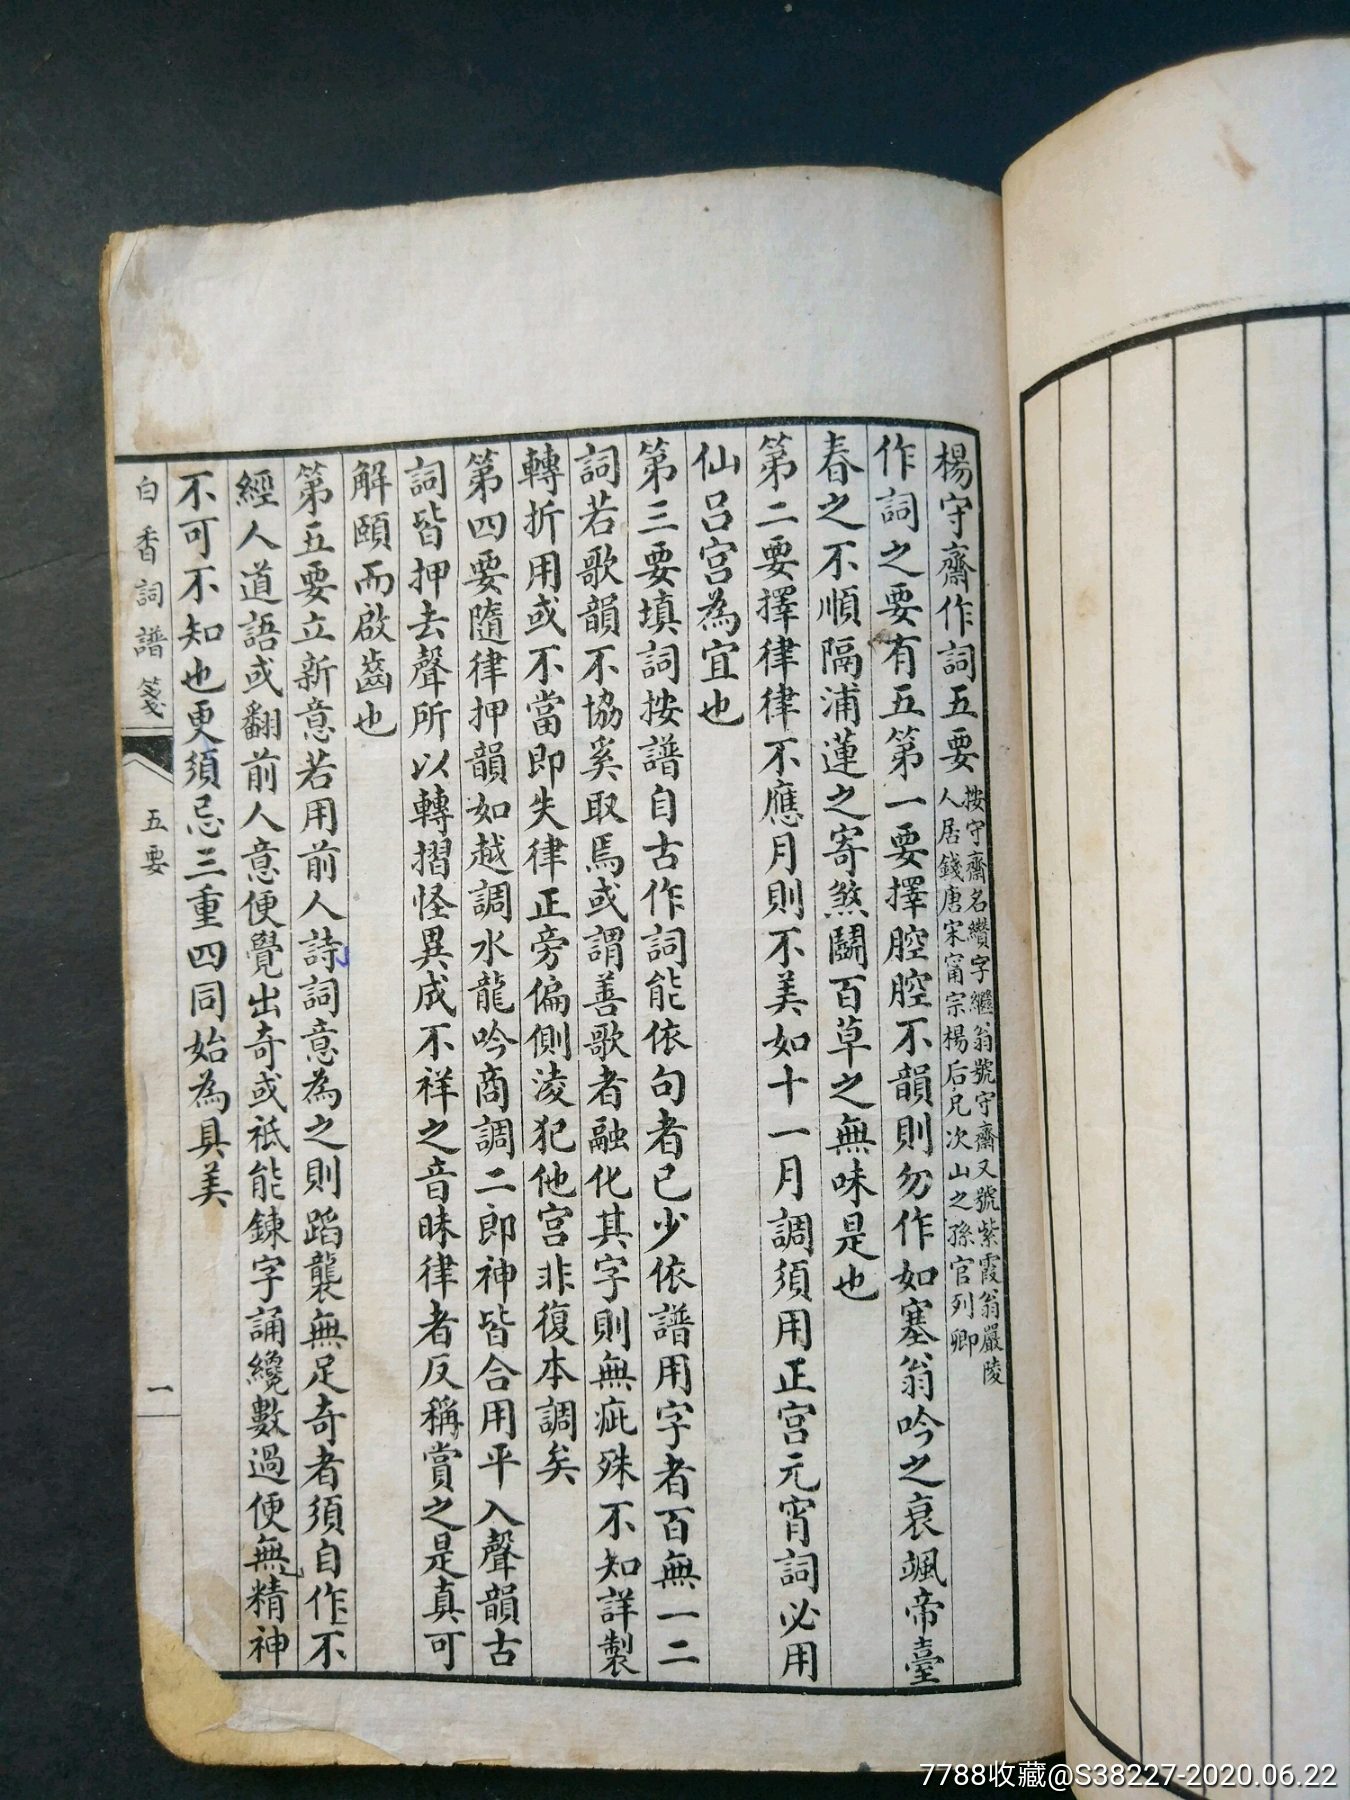 楊守齋作詞五要
按守齋名纘字繼翁號守齋又號紫霞翁嚴陵
人居錢唐宋甯宗楊后兄次山之孫官列卿
作詞之要有五第一要擇腔腔不韻則勿作如塞翁吟之衰颯帝臺
春之不順隔浦蓮之寄煞鬬百草之無味是也
第二要擇律律不應月則不美如十一月調須用正宮元宵詞必用
仙呂宮為宜也
第三要填詞按譜自古作詞能依句者已少依譜用字者百無一二
詞若歌韻不協奚取焉或謂善歌者融化其字則無疵殊不知詳製
轉折用或不當即失律正旁偏側淩犯他宮非復本調矣
第四要隨律押韻如越調水龍吟商調二郎神皆合用平入聲韻古
詞皆押去聲所以轉摺怪異成不祥之音昧律者反稱賞之是真可
解頤而啟齒也
第五要立新意若用前人詩詞意為之則蹈襲無足奇者須自作不
經人道語或翻前人意便覺出奇或祇能鍊字誦纔數過便無精神
不可不知也更須忌三重四同始為具美
白香詞譜箋
五要
一
7788收藏@S38227-2020.06.22